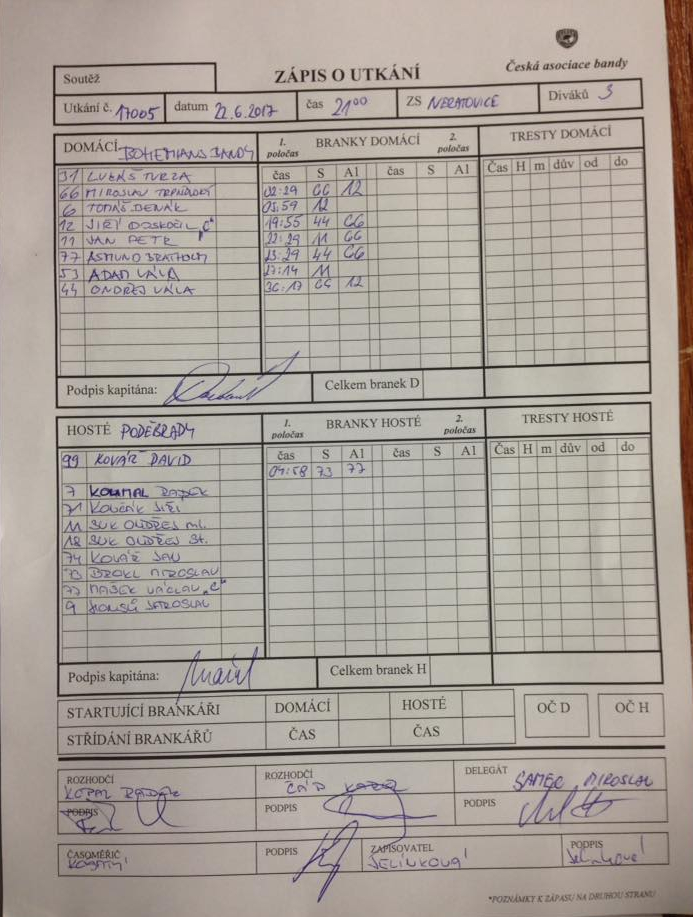 Česká asociace bandy
Soutěž
ZÁPIS O UTKÁNÍ
Utkání č. 17005 datum 22.6.2017 čas 21⁰⁰ ZS NERATOVICE Diváků 3
DOMÁCÍ BOHEMIANS BANDY 1. poločas BRANKY DOMÁCÍ 2. poločas TRESTY DOMÁCÍ
čas S A1 čas S A1 Čas H m dův od do
31 LUKÁŠ TURZA 02:29 66 12
66 MIROSLAV 05:59 12
6 TOMÁŠ BENÁK 19:55 44 66
12 JIŘÍ DOSKOČIL "C" 22:29 11 66
11 JAN PETR 23:29 44 66
77 ASMUND BRATHOLM 27:14 11
53 ADAM VÁLA 36:17 66 12
44 ONDŘEJ VÁLA
Podpis kapitána: Celkem branek D
HOSTÉ PODĚBRADY 1. poločas BRANKY HOSTÉ 2. poločas TRESTY HOSTÉ
čas S A1 čas S A1 Čas H m dův od do
99 KOVÁŘ DAVID 04:58 73 77
7 RADEK
71 JIŘÍ
11 SUK ONDŘEJ ml.
18 SUK ONDŘEJ st.
74 KOVÁŘ JAN
73 BROKL MIROSLAV
77 MAŠEK VÁCLAV "C"
9 JAROSLAV
Podpis kapitána: Celkem branek H
STARTUJÍCÍ BRANKÁŘI DOMÁCÍ HOSTÉ OČ D OČ H
STŘÍDÁNÍ BRANKÁŘŮ ČAS ČAS
ROZHODČÍ ROZHODČÍ DELEGÁT SAMEC MIROSLAV
PODPIS PODPIS PODPIS
ČASOMĚŘIČ PODPIS ZAPISOVATEL JELÍNKOVÁ PODPIS Jelínková
*POZNÁMKY K ZÁPASU NA DRUHOU STRANU